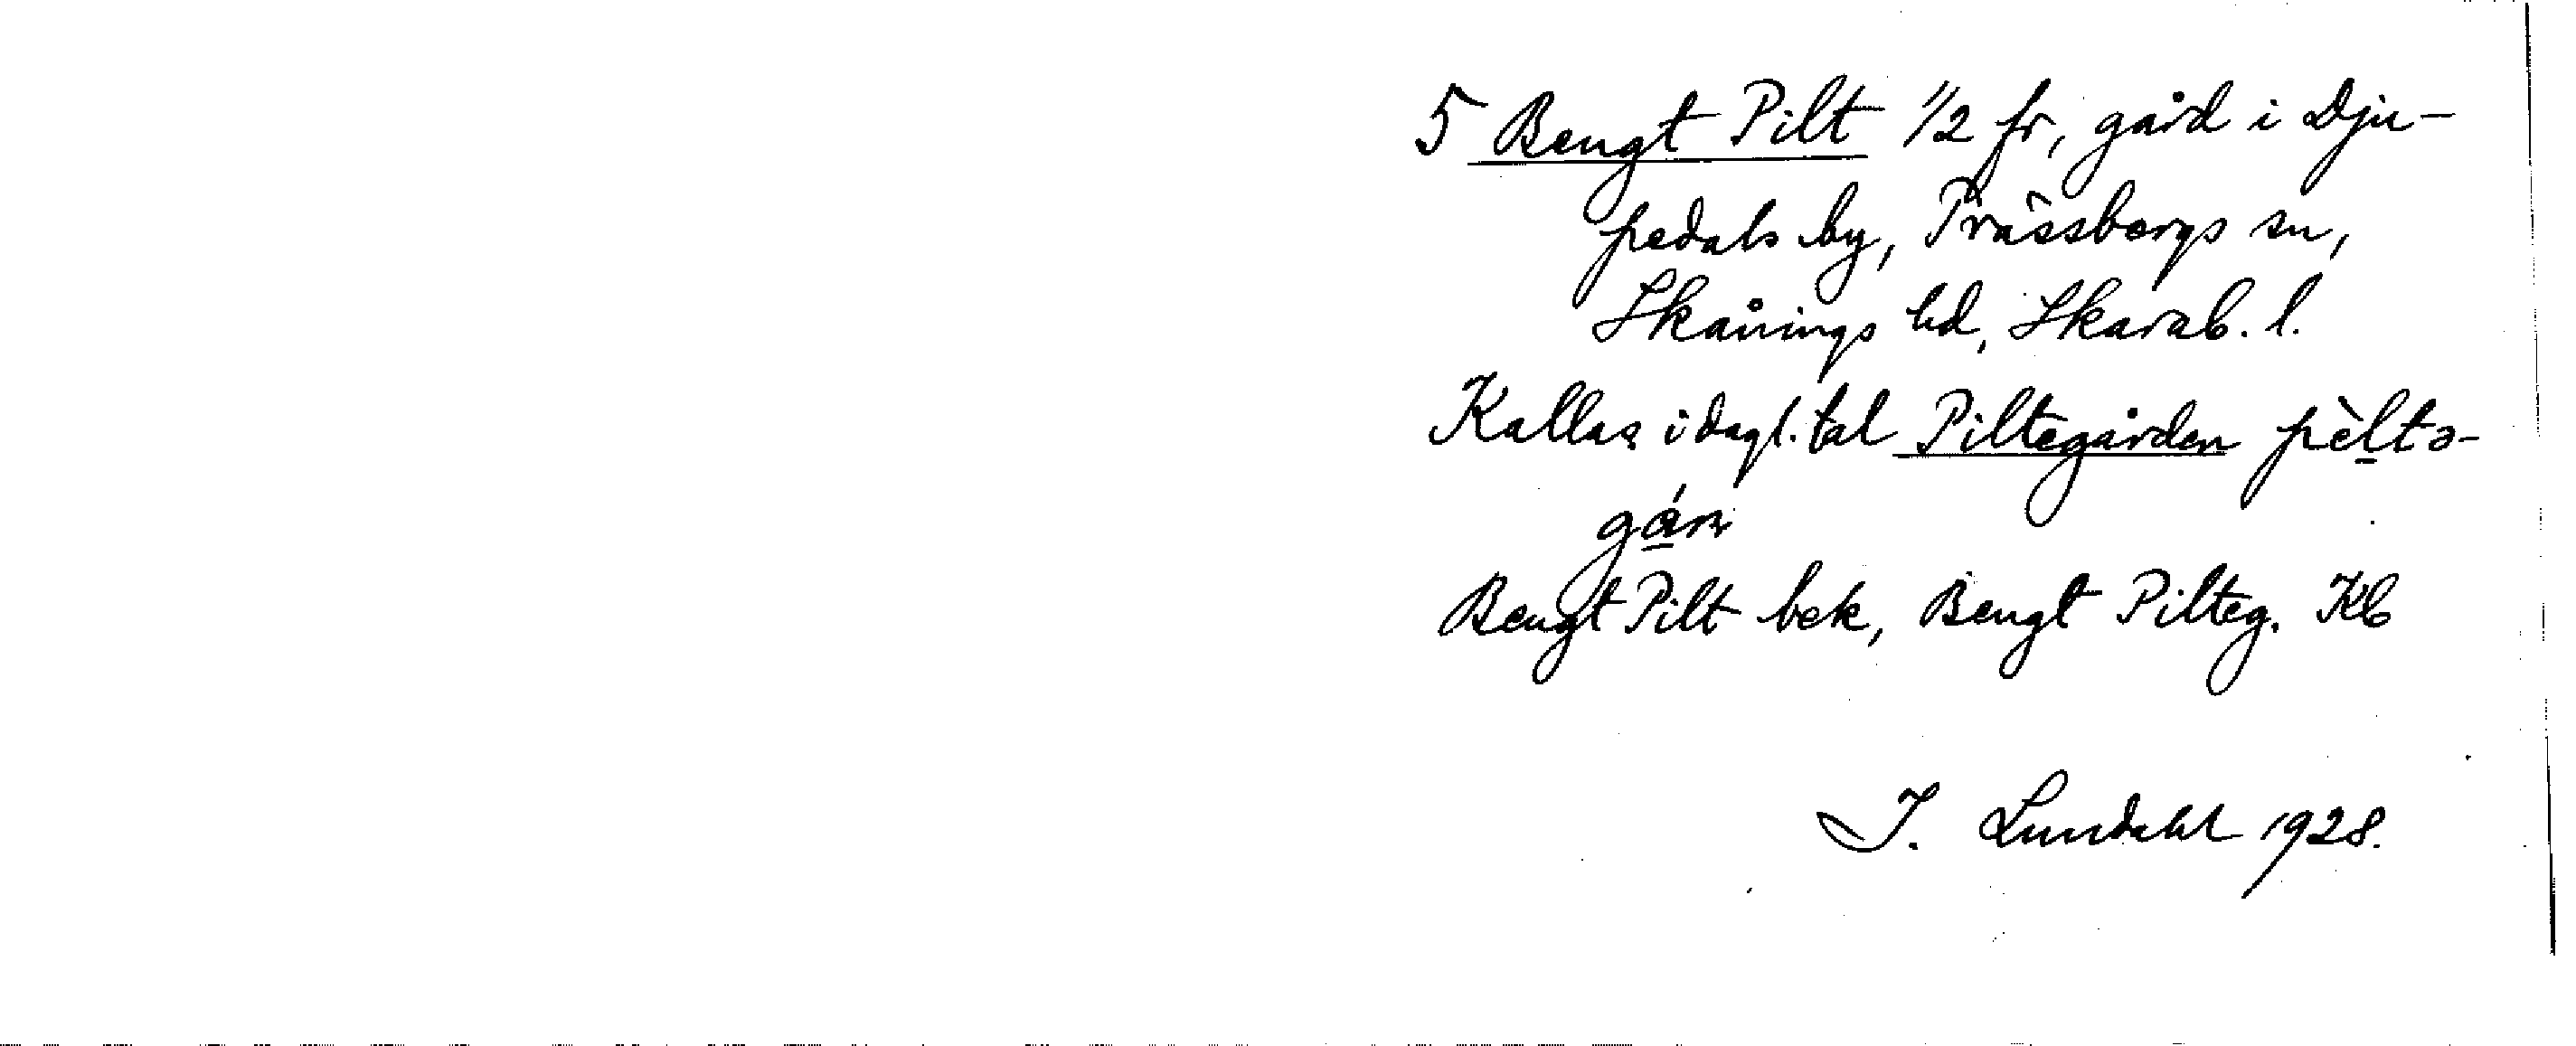 5 Bengt Pilt 1/2 fr, gård i Dju-
pedals by, Trässbergs sn,
Skånings hd, Skarab. l.
Kallas i dagl. tal Piltegården pèltə-
gárn
Bengt Pilt bek, Bengt Pilteg. Kb
J. Lundahl 1928.